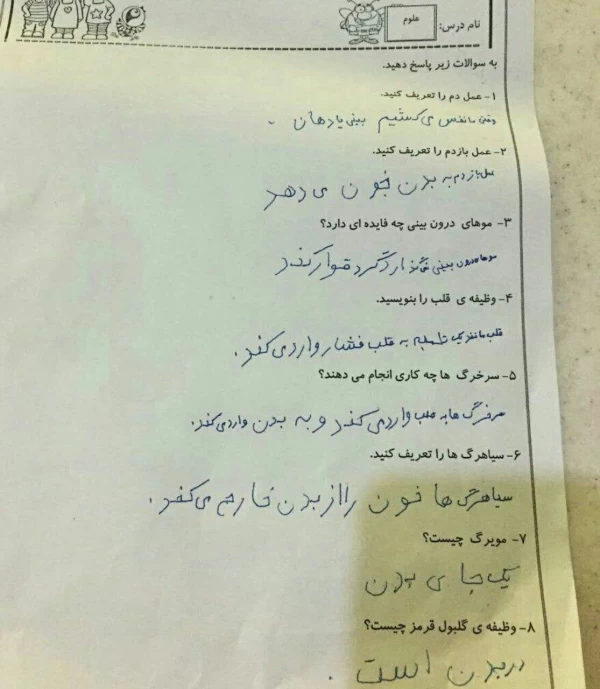 نام درس:
علوم
به سوالات زیر پاسخ دهید.
۱- عمل دم را تعریف کنید.
وقتی ما نفس می کشیم بینی یا دهان .
۲- عمل بازدم را تعریف کنید.
عمل بازدم به بدن خون می دهد
۳- موهای درون بینی چه فایده ای دارد؟
موها درون بینی
۴- وظیفه ی قلب را بنویسید.
قلب مانند یک تلمبه به قلب فشار وارد می کند .
۵- سرخرگ ها چه کاری انجام می دهند؟
سرخرگ ها به قلب وارد می کند و به بدن وارد می کند .
۶- سیاهرگ ها را تعریف کنید.
سیاهرگ ها خون را از بدن خارج می کند .
۷- مویرگ چیست؟
یک جا ی بدن
۸- وظیفه ی گلبول قرمز چیست؟
در بدن است .